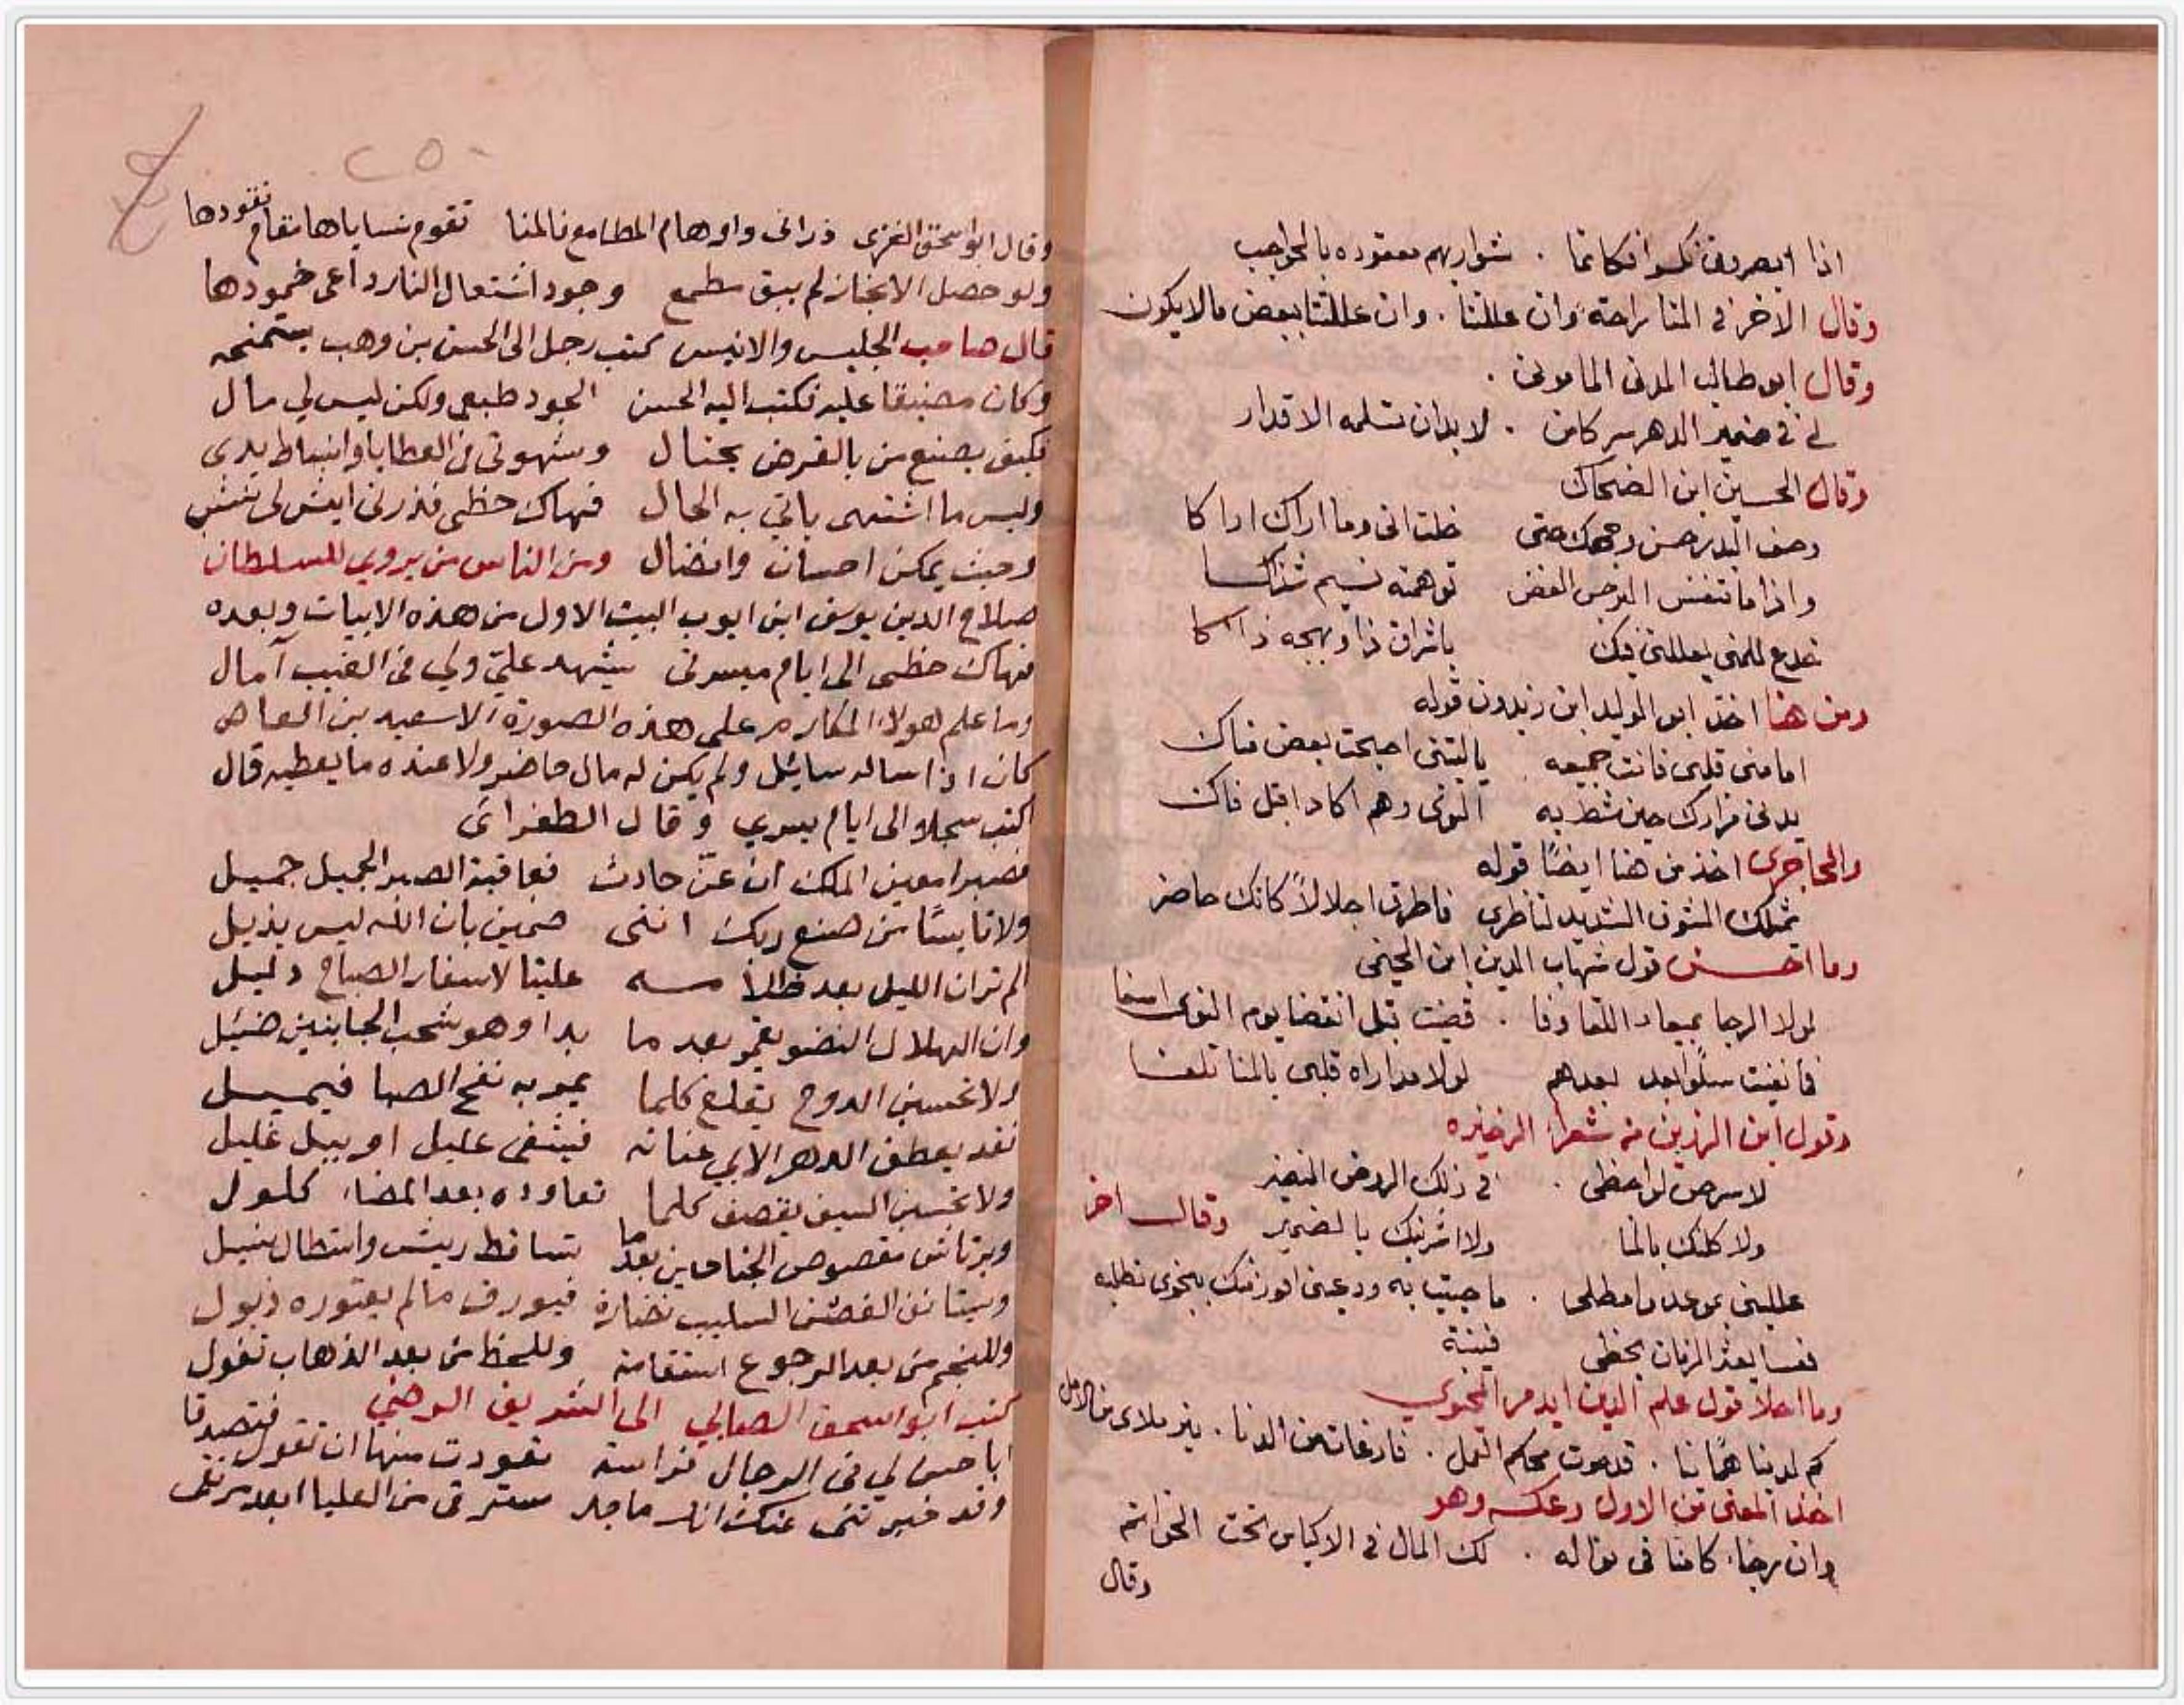 اذا ابصروني نكسوا فكانما . شواربهم معقوده بالحواجب
وقال الاخر في المنا راحة وان عللنا . وان عللتنا ببعض مالا يكون
وقال ابو طالب المدني الماموني .
لي في ضمير الدهر سر كامن . لا بد ان تسلمه الاقدار
وقال الحسين ابن الضحاك
وصف البدر حسن وجهك حتى خلت اني وما اراك اراكا
واذا ما تنفس النرجس الغض توهمته نسيم شذاكا
خدع للمنى تعللني فيك باشراق ذا وبهجه ذاكا
ومن هنا اخذ ابو الوليد ابن زيدون قوله
اما منى قلبي فانت جميعه ياليتني اصبحت بعض مناك
يدني مزارك حين شط به النوى وهم اكاد اقبل فاك
والحاجري اخذ من هنا ايضًا قوله
تمثلك الشوق الشديد لناظري فاطرق اجلالاً كانك حاضر
وما احسن قول شهاب الدين ابن الخيمي
لولا الرجا بميعاد اللقا وفا . قضيت قبل انقضا يوم النوى اسفا
فابقيت سلوا بعد بعدهم لولا مداراه قلبي بالمنا تلفا
وقول ابن الرزين من شعراء الذخيره
لاسرحن لواحظي . في ذلك الروض النضير
ولاكلنك بالمنا ولاشربنك بالضمير وقال اخر
عللينى بموعد وامطلى . ما حييت به ودعينى افوز منك بنجوى تطلبه
فعسا يعثر الزمان بحظي فينبه
وما احلا قول علم الدين ايدمر المحيوي
كم لدينا هميانا . قد حوت محكم العمل . فارغات من الدنا . نير ملاى من الامل
اخذ المعنى من الاول وعكسه وهو
وان رجاء كامنا في نواله . لك المال في الاكياس تحت الخواتم
وقال
٢٥٠
وقال ابو اسحق الغزي ذراني واوهام المطامع فالمنا تقوم نساياها مقام نقودها
ولو حصل الانجاز لم يبق مطمع وجود اشتعال النار داعى خمودها
قال صاحب الجليس والانيس كتب رجل الى الحسن بن وهب يستمنحه
وكان مضيقا عليه فكتب اليه الحسن الجود طبعي ولكن ليس لي مال
فكيف يصنع من بالقرض يحتال وشهوتي في العطايا وانبساط يدى
وليس ما اشتهى ياتي به الحال فهاك حظى فذرنى ايش لى نشب
وحيث يمكن احسان وافضال ومن الناس من يروي للسلطان
صلاح الدين يوسف ابن ايوب البيت الاول من هذه الابيات وبعده
فهاك خطى الى ايام ميسرتى يشهد عليّ ولي في الغيب آمال
وما علم لهولاء المكارم على هذه الصورة الا سعيد بن العاص
كان اذا ساله سايل ولم يكن له مال حاضر ولا عنده ما يعطيه قال
اكتب سجلا الى ايام يسري وقال الطغرائى
فصبرا معين الملك ان عنّ حادث فعاقبة الصبر الجميل جميل
ولا تايسًا من صنع ربك اننى ضمين بان الله ليس يذيل
الم تر ان الليل بعد ظلامه علينا لاسفار الصباح دليل
وان الهلال النضو يقمر بعد ما بدا وهو شحب الجانبين ضئيل
ولا تحسبن الدوح يقلع كلما يمر به نفح الصبا فيميل
فقد يعطف الدهر الابي عنانه فيشفى عليل او يبل غليل
ولا تحسبن السيف يقصف كلما تعاوده بعد المضاء كلول
ويرتاش مقصوص الجناحين بعدما تساقط ريش واستطال نسيل
ويستانف الغصن السليب نضارة فيورق ما لم يعتوره ذبول
وللنجم من بعد الرجوع استقامة وللحظ من بعد الذهاب قفول
كتب ابو اسحق الصابي الى الشريف الرضي
ابا حسن لي في الرجال فراسة تعودت منها ان تقول فتصدقا
وقد خبرتني عنك انك ماجد سترقى من العليا ابعد مرتقى